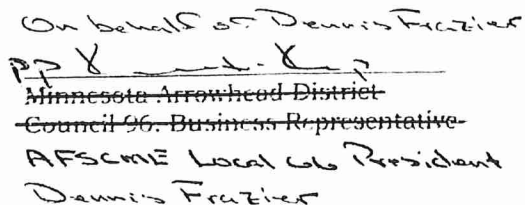 On behalf of Dennis Frazier
PP
Minnesota Arrowhead District
Council 96. Business Representative
AFSCME Local 66 President
Dennis Frazier